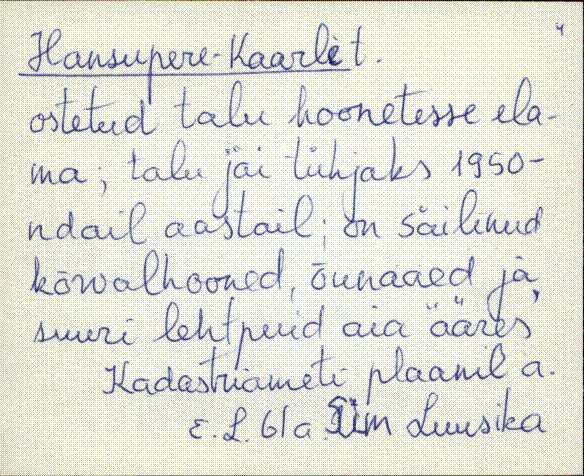 4
Hansupere-Kaarli t.
ostetud talu hoonetesse ela-
ma; talu jäi tühjaks 1950-
ndail aastail; on säilinud
kõrvalhooned, õunaaed ja
suuri lehtpuid aia ääres
Kadastriameti plaanil a.
E. L. 61a Siim Luusika